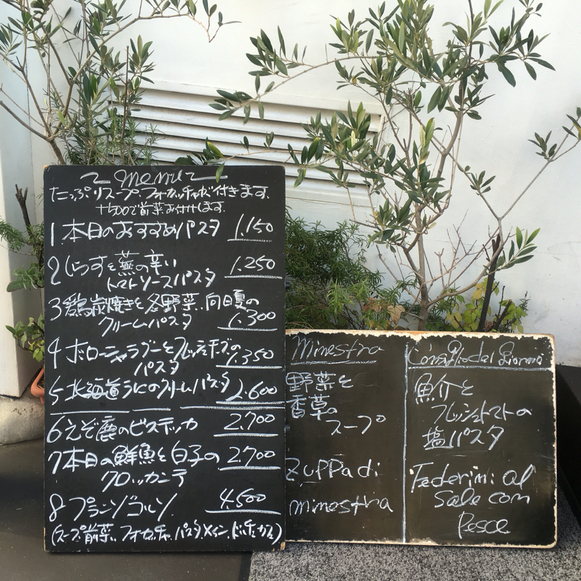 menu
たっぷりスープ、フォカッチャが付きます。
+500で前菜お付けします。
1 本日のおすすめパスタ 1.150
2 しらすと蕪の辛い
トマトソースパスタ 1.250
3 鶏炭焼きと冬野菜、向日夏の
クリームパスタ 1.300
4 ボローニャラグーとフレッシュチーズの
パスタ 1.350
5 北海道うにのクリームパスタ 2.600
6 えぞ鹿のビステッカ 2.700
7 本日の鮮魚と白子の 2700
クロッカンテ
8 プランゾコルソ 4.500
(スープ、前菜、フォカッチャ、パスタ、メイン、ドルチェ、カフェ)
Minestra
野菜と
香草の
スープ
Zuppa di
minestra
Consiglio del Giorno
魚介と
フレッシュトマトの
塩パスタ
Federini al
Sale con
Pesce